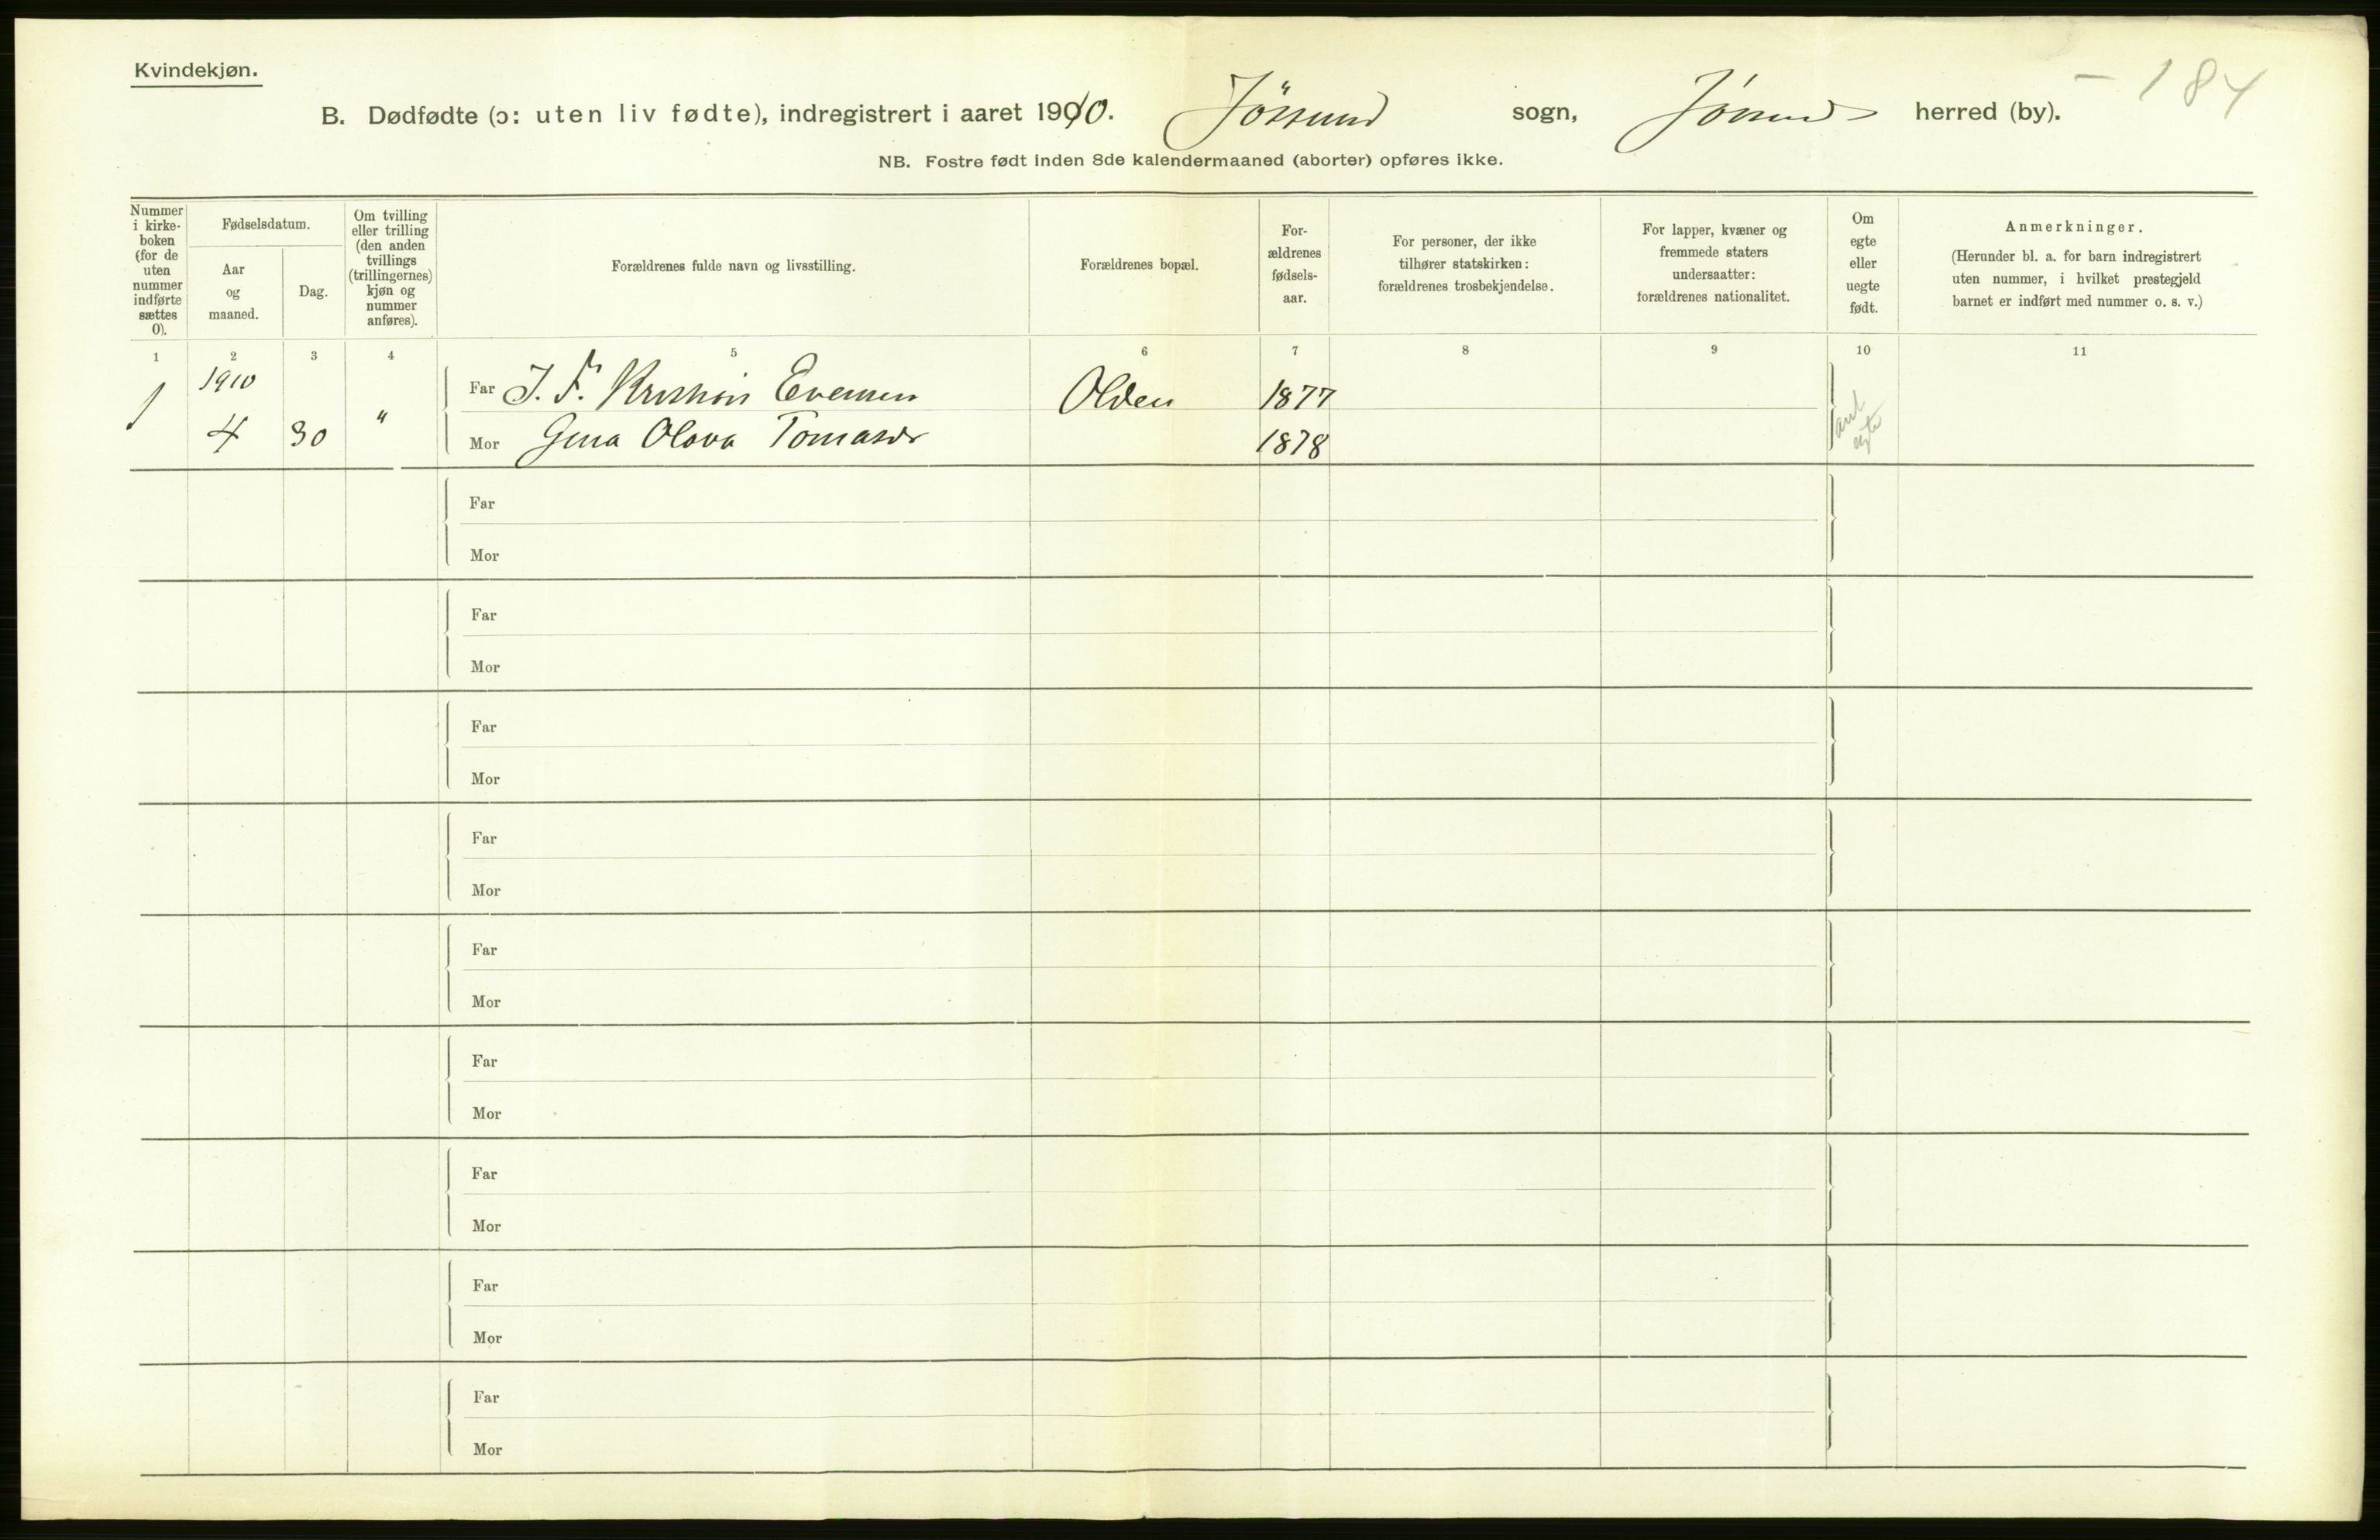 Kvindekjøn.
184
B. Dødfødte (ɔ: uten liv fødte), indregistrert i aaret 1910. Jössund sogn, Jössund herred (by).
NB. Fostre født inden 8de kalendermaaned (aborter) opføres ikke.
Nummer i kirke-
boken
(for de
uten
nummer
indførte
sættes
0).
Fødselsdatum.
Aar
og
maaned.
Dag.
Om tvilling
eller trilling
(den anden
tvillings
(trillingernes)
kjøn og
nummer
anføres).
Forældrenes fulde navn og livsstilling.
Forældrenes bopæl.
For-
ældrenes
fødsels-
aar.
For personer, der ikke
tilhører statskirken:
forældrenes trosbekjendelse.
For lapper, kvæner og
fremmede staters
undersaatter:
forældrenes nationalitet.
Om
egte
eller
uegte
født.
Anmerkninger.
(Herunder bl. a. for barn indregistrert
uten nummer, i hvilket prestegjeld
barnet er indført med nummer o. s. v.)
1 2 3 4 5 6 7 8 9 10 11
1910
1 4 30 "
Far J. F. Kristian Evensen Olden 1877
Mor Gina Olava Tomasdr 1878
ant
egte
Far
Mor
Far
Mor
Far
Mor
Far
Mor
Far
Mor
Far
Mor
Far
Mor
Far
Mor
Far
Mor